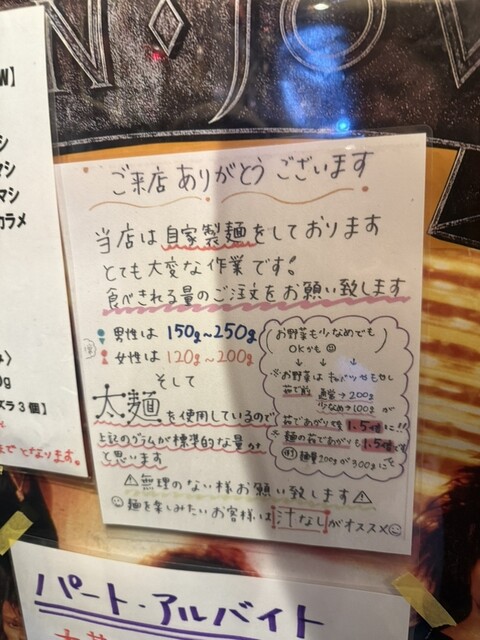 N・JOV
W】
シ
マシ
マシ
カラメ
ご来店ありがとうございます
当店は自家製麺をしております
とても大変な作業です!
食べきれる量のご注文をお願い致します
男性は 150g~250g
女性は 120g~200g
そして
太麺を使用しているので
上記のグラムが標準的な量かと
と思います
お野菜も少なめでも
OKかも
↓ ↓ ↓
※お野菜はキャベツ・もやし
茹で前 通常→200g
少なめ→100gが
茹であがり後1.5倍に!!
※麺の茹であがりも1.5倍です
麺量200gが300gに
⚠無理のない様お願い致します⚠
麺を楽しみたいお客様は汁なしがオススメ
0g
ズラ3個】
まで となります。
パート・アルバイト